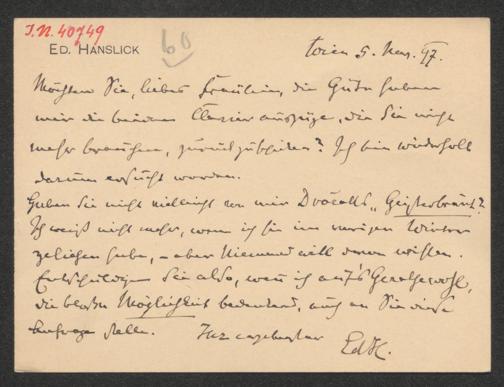 I.N. 40749
ED. HANSLICK
60
Wien 5. Nov. 97.
Möchten Sie, liebes Fräulein, die Güte haben
mir die beiden Clavierauszüge, die Sie nicht
mehr brauchen, zurückzuschicken? Ich bin wiederholt
darum ersucht worden.
Haben Sie nicht vielleicht von mir Dvořaks „Geisterbraut"?
Ich weiß nicht mehr, wem ich sie im vorigen Winter
geliehen habe, – aber Niemand will davon wissen.
Entschuldigen Sie also, wenn ich auf's Gerathewohl,
die bloße Möglichkeit bedenkend, auch an Sie diese
Anfrage stelle. Ihr ergebenster
EdH.